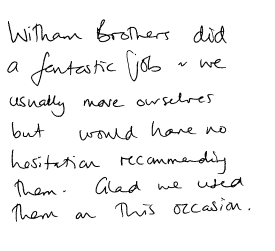 Witham Brothers did
a fantastic job ~ we
usually move ourselves
but would have no
hesitation recommending
them. Glad we used
them on this occasion.